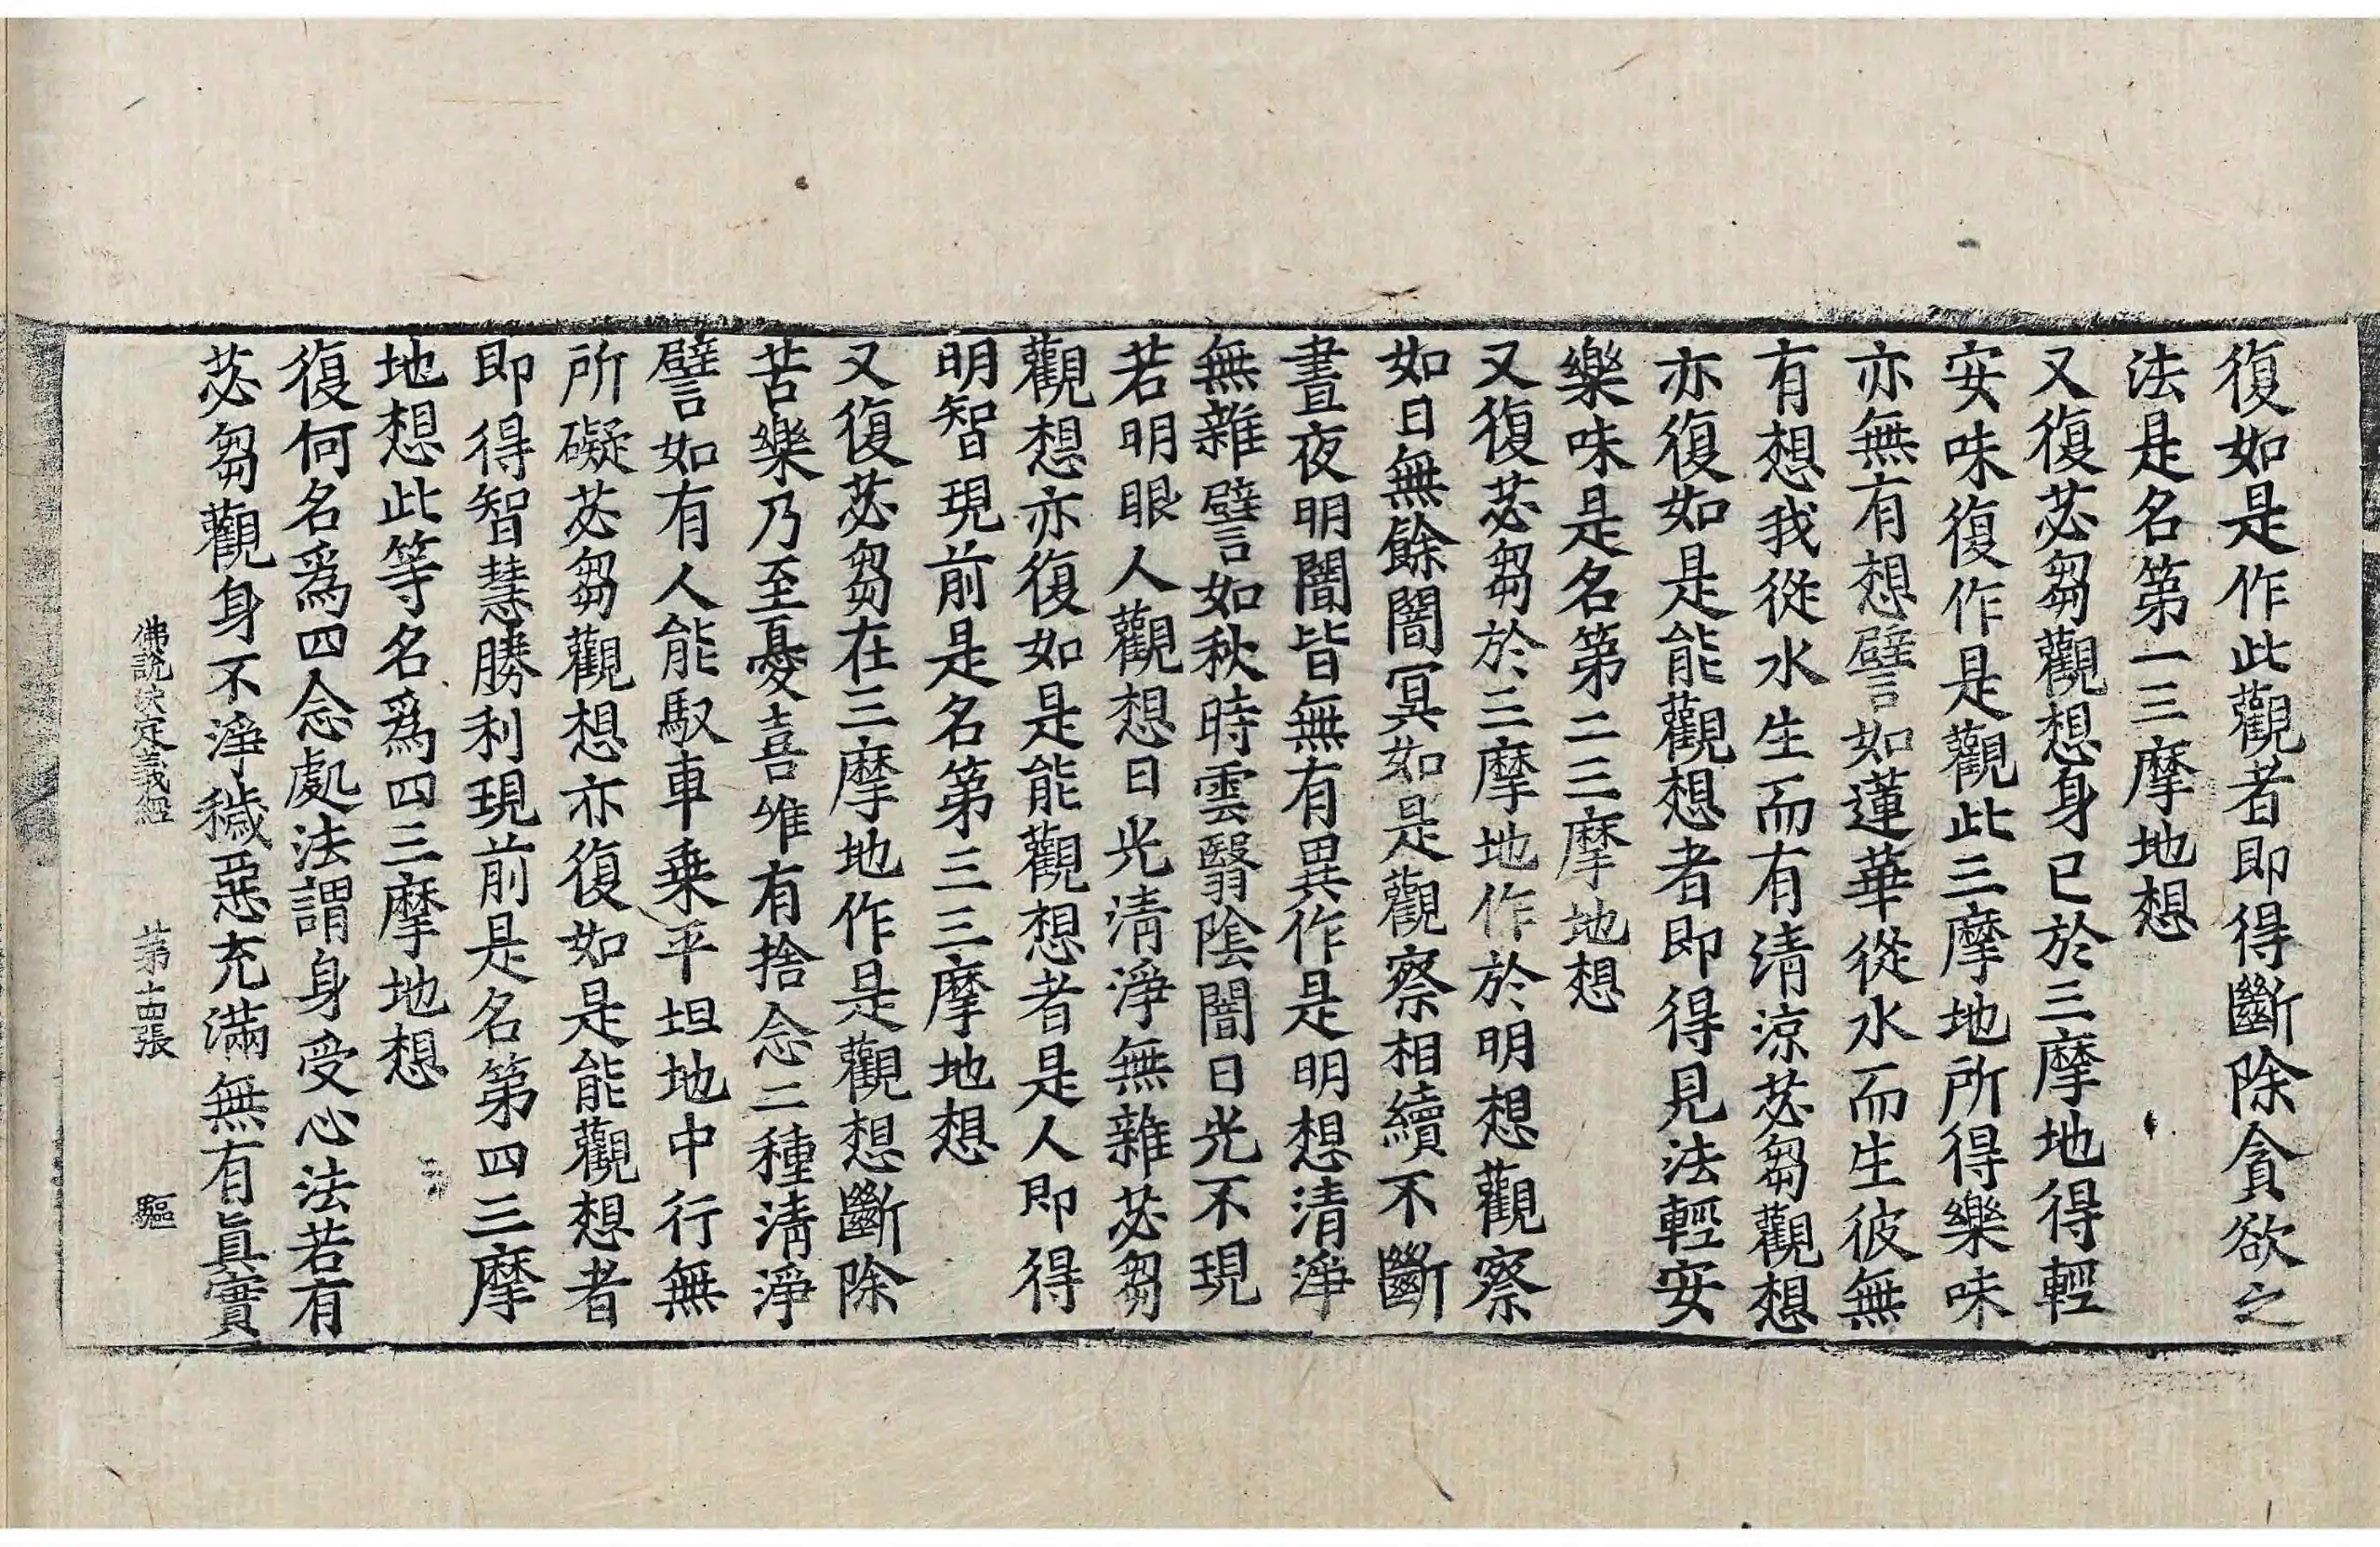 復如是作此觀者即得斷除貪欲之
法是名第一三摩地想
又復苾芻觀想身已於三摩地得輕
安味復作是觀此三摩地所得樂味
亦無有想譬如蓮華從水而生彼無
有想我從水生而有清涼苾芻觀想
亦復如是能觀想者即得見法輕安
樂味是名第二三摩地想
又復苾芻於三摩地作於明想觀察
如日無餘闇冥如是觀察相續不斷
晝夜明闇皆無有異作是明想清淨
無雜譬如秋時雲翳陰闇日光不現
若明眼人觀想日光清淨無雜苾芻
觀想亦復如是能觀想者是人即得
明智現前是名第三三摩地想
又復苾芻在三摩地作是觀想斷除
苦樂乃至憂喜唯有捨念二種清淨
譬如有人能馭車乗平坦地中行無
所礙苾芻觀想亦復如是能觀想者
即得智慧勝利現前是名第四三摩
地想此等名爲四三摩地想
復何名爲四念處法謂身受心法若有
苾芻觀身不淨穢惡充滿無有眞實
佛說決定義經 第十四張 驅